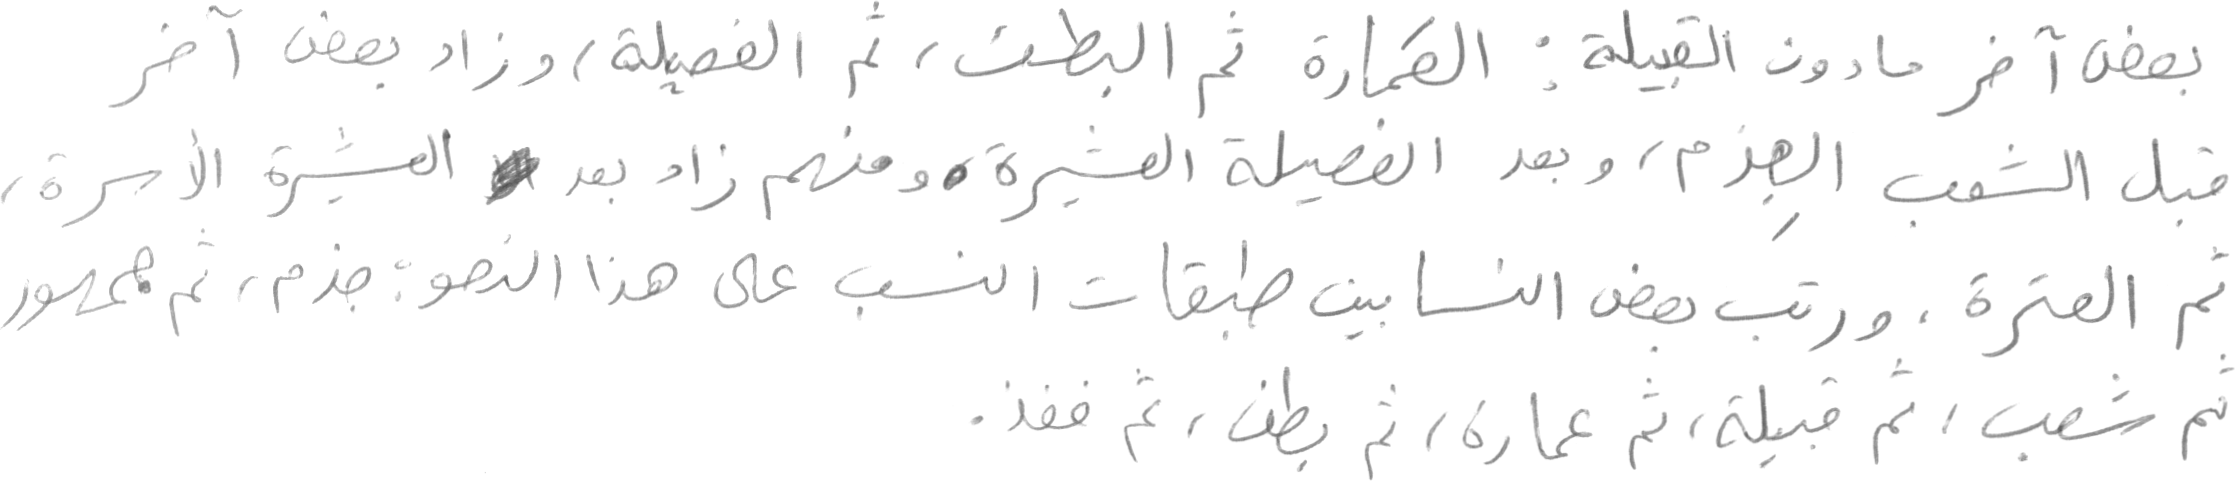 بعض آخر مادون القبيلة: العمارة ثم البطن، ثم الفصيلة، وزاد بعض آخر
قبل الشعب الجِذم، وبعد الفصيلة العشيرة، ومنهم زاد بعد العشيرة الأسرة،
ثم العترة. ورتب بعض النسابين طبقات النسب على هذا النحو: جذم، ثم جمهور
ثم شعب، ثم قبيلة، ثم عمارة، ثم بطن، ثم فخذ.